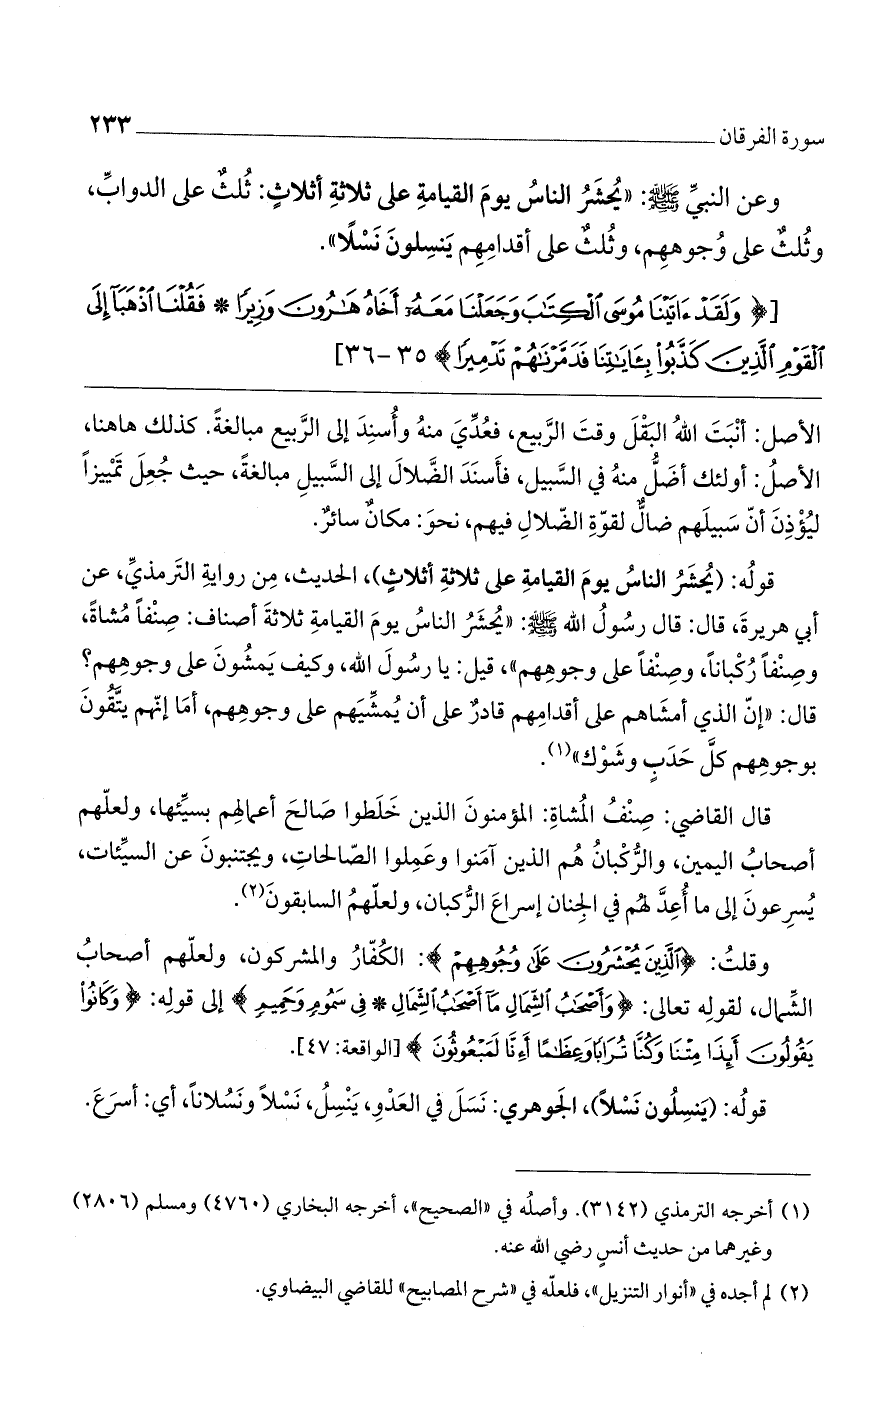 سورة الفرقان ٢٣٣
وعن النبيِّ ﷺ: «يُحشَرُ الناسُ يومَ القيامةِ على ثلاثةِ أثلاثٍ: ثُلثٌ على الدوابِّ،
وثُلثٌ على وُجوههِم، وثُلثٌ على أقدامِهِم يَنسِلونَ نَسْلًا».
[﴿ وَلَقَدْ ءَاتَيْنَا مُوسَى ٱلْكِتَٰبَ وَجَعَلْنَا مَعَهُۥٓ أَخَاهُ هَٰرُونَ وَزِيرًا * فَقُلْنَا ٱذْهَبَآ إِلَى
ٱلْقَوْمِ ٱلَّذِينَ كَذَّبُوا۟ بِـَٔايَٰتِنَا فَدَمَّرْنَٰهُمْ تَدْمِيرًا ﴾ ٣٥ – ٣٦]
الأصل: أنْبَتَ اللهُ البَقْلَ وقتَ الرَّبيع، فعُدِّيَ منهُ وأُسنِدَ إلى الرَّبيع مبالغةً. كذلك هاهنا،
الأصلُ: أولئك أضَلُّ منهُ في السَّبيل، فأَسنَدَ الضَّلالَ إلى السَّبيلِ مبالغةً، حيث جُعِلَ تَمْييزاً
ليُؤْذِنَ أنّ سَبيلَهم ضالٌّ لقوّةِ الضّلالِ فيهم، نحوَ: مكانٌ سائرٌ.
قولُه: (يُحشَرُ الناسُ يومَ القيامةِ على ثلاثةِ أثلاثٍ)، الحديث، مِن روايةِ التّرمذيِّ، عن
أبي هريرةَ، قال: قال رسُولُ الله ﷺ: «يُحشَرُ الناسُ يومَ القيامةِ ثلاثةَ أصناف: صِنْفاً مُشاةً،
وصِنْفاً رُكْباناً، وصِنْفاً على وجوهِهم»، قيل: يا رسُولَ الله، وكيف يَمشُونَ على وجوهِهم؟
قال: «إنّ الذي أمشَاهم على أقدامِهم قادرٌ على أن يُمشِّيَهم على وجوهِهم، أمَا إنّهم يتَّقُونَ
بوجوهِهم كلَّ حَدَبٍ وشَوْك»(١).
قال القاضي: صِنْفُ المُشاةِ: المؤمنونَ الذين خَلَطوا صَالحَ أعمالِهم بسيِّئها، ولعلّهم
أصحابُ اليمين، والرُّكْبانُ هُم الذين آمَنوا وعَمِلوا الصّالحاتِ، ويجتنبونَ عن السيِّئات،
يُسرِعونَ إلى ما أُعِدَّ لهُم في الجِنان إسراعَ الرُّكبان، ولعلّهمُ السابقونَ(٢).
وقلتُ: ﴿ٱلَّذِينَ يُحْشَرُونَ عَلَىٰ وُجُوهِهِمْ ﴾: الكُفّارُ والمشركون، ولعلّهم أصحابُ
الشِّمال، لقولِه تعالى: ﴿ وَأَصْحَٰبُ ٱلشِّمَالِ مَآ أَصْحَٰبُ ٱلشِّمَالِ * فِى سَمُومٍ وَحَمِيمٍ ﴾ إلى قولِه: ﴿ وَكَانُوا۟
يَقُولُونَ أَئِذَا مِتْنَا وَكُنَّا تُرَابًا وَعِظَٰمًا أَءِنَّا لَمَبْعُوثُونَ ﴾ [الواقعة: ٤٧].
قولُه: (يَنسِلُون نَسْلاً)، الجَوهري: نَسَلَ في العَدْوِ، يَنْسِلُ، نَسْلاً ونَسَلاناً، أي: أسرَعَ.
(١) أخرجه الترمذي (٣١٤٢). وأصلُه في «الصحيح»، أخرجه البخاري (٤٧٦٠) ومسلم (٢٨٠٦)
وغيرهما من حديث أنسٍ رضي الله عنه.
(٢) لم أجده في «أنوار التنزيل»، فلعلّه في «شرح المصابيح» للقاضي البيضاوي.